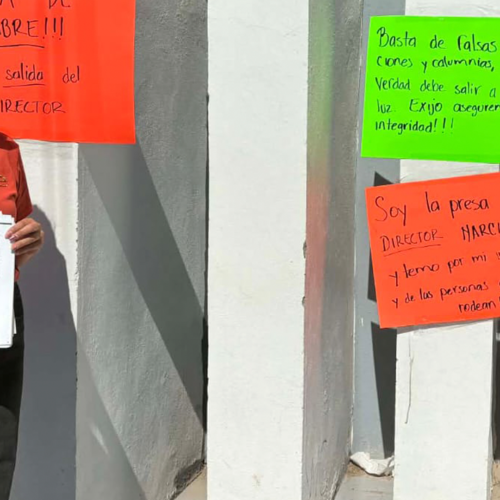 DE
BRE!!!
salida del
DIRECTOR
Basta de falsas
ciones y calumnias,
verdad debe salir a
luz. Exijo aseguren
integridad!!!
Soy la presa
DIRECTOR MARC
y temo por mi
y de las personas
rodean